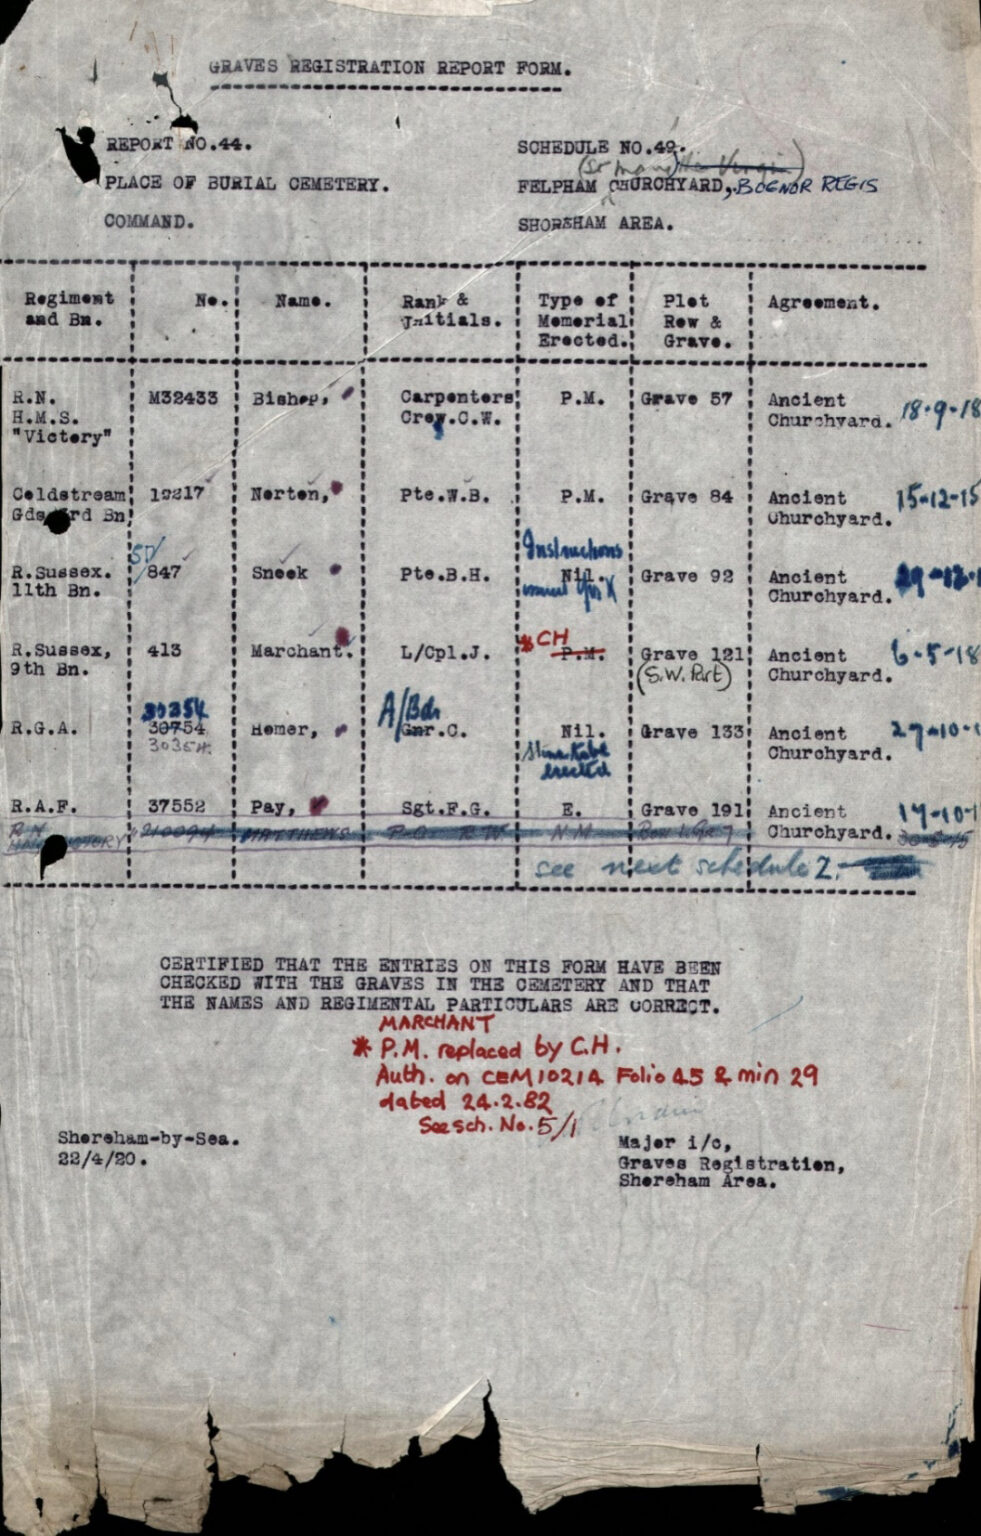 GRAVES REGISTRATION REPORT FORM.
REPORT NO.44.
SCHEDULE NO.49.
(St Mary The Virgin)
PLACE OF BURIAL CEMETERY.
FELPHAM CHURCHYARD, BOGNOR REGIS
COMMAND.
SHOREHAM AREA.
Regiment and Bn. No. Name. Rank & Initials. Type of Memorial Erected. Plot Row & Grave. Agreement.
R.N. M32433 Bishop, Carpenters P.M. Grave 57 Ancient 18-9-18
H.M.S. Crew.C.W. Churchyard.
"Victory"
Coldstream 12217 Norton, Pte.W.B. P.M. Grave 84 Ancient 15-12-15
Gds. 3rd Bn Churchyard.
Instructions
R.Sussex. SD/847 Sneek Pte.B.H. Nil. Grave 92 Ancient
11th Bn. issued Churchyard.
* CH
R.Sussex, 413 Marchant. L/Cpl.J. P.M. Grave 121 Ancient 6-5-18
9th Bn. (S.W. Part) Churchyard.
30354 A/Bdr
R.G.A. 30754 Homer, Gnr.C. Nil. Grave 133 Ancient 27-10-
30354 Churchyard.
erected
R.A.F. 37552 Pay, Sgt.F.G. E. Grave 191 Ancient
Churchyard.
R.N. VICTORY 210094 MATTHEWS P.O. R.W. N.M. Row 1. Gr 7
see next schedule 2.
CERTIFIED THAT THE ENTRIES ON THIS FORM HAVE BEEN
CHECKED WITH THE GRAVES IN THE CEMETERY AND THAT
THE NAMES AND REGIMENTAL PARTICULARS ARE CORRECT.
MARCHANT
* P.M. replaced by C.H.
Auth. on CEM 10214 Folio 45 & min 29
dated 24.2.82
See sch. No. 5/1
Shoreham-by-Sea.
22/4/20.
Major i/c,
Graves Registration,
Shoreham Area.